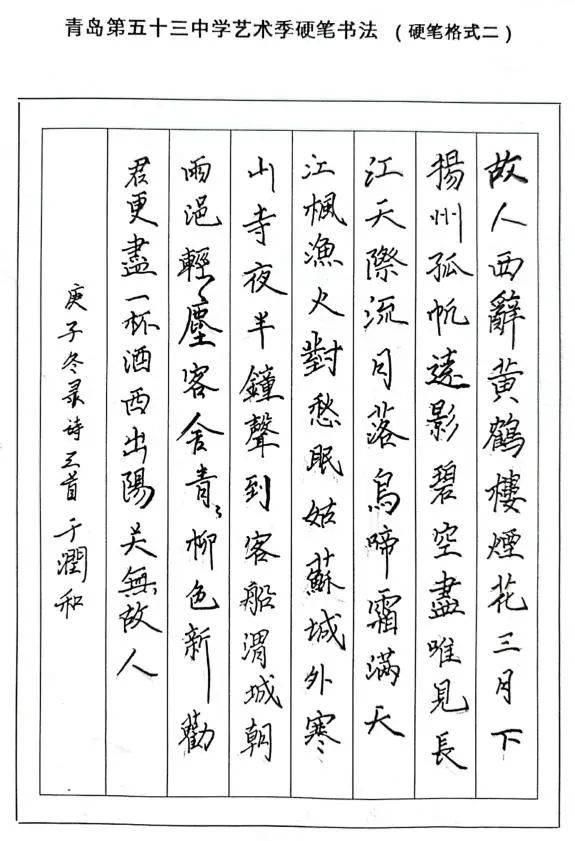 青岛第五十三中学艺术季硬笔书法 （硬笔格式二）
故人西辭黄鶴樓煙花三月下
揚州孤帆遠影碧空盡唯見長
江天際流月落烏啼霜滿天
江楓漁火對愁眠姑蘇城外寒
山寺夜半鐘聲到客船渭城朝
雨浥輕々塵客舍青々柳色新勸
君更盡一杯酒西出陽关無故人
庚子冬录诗三首于潤和